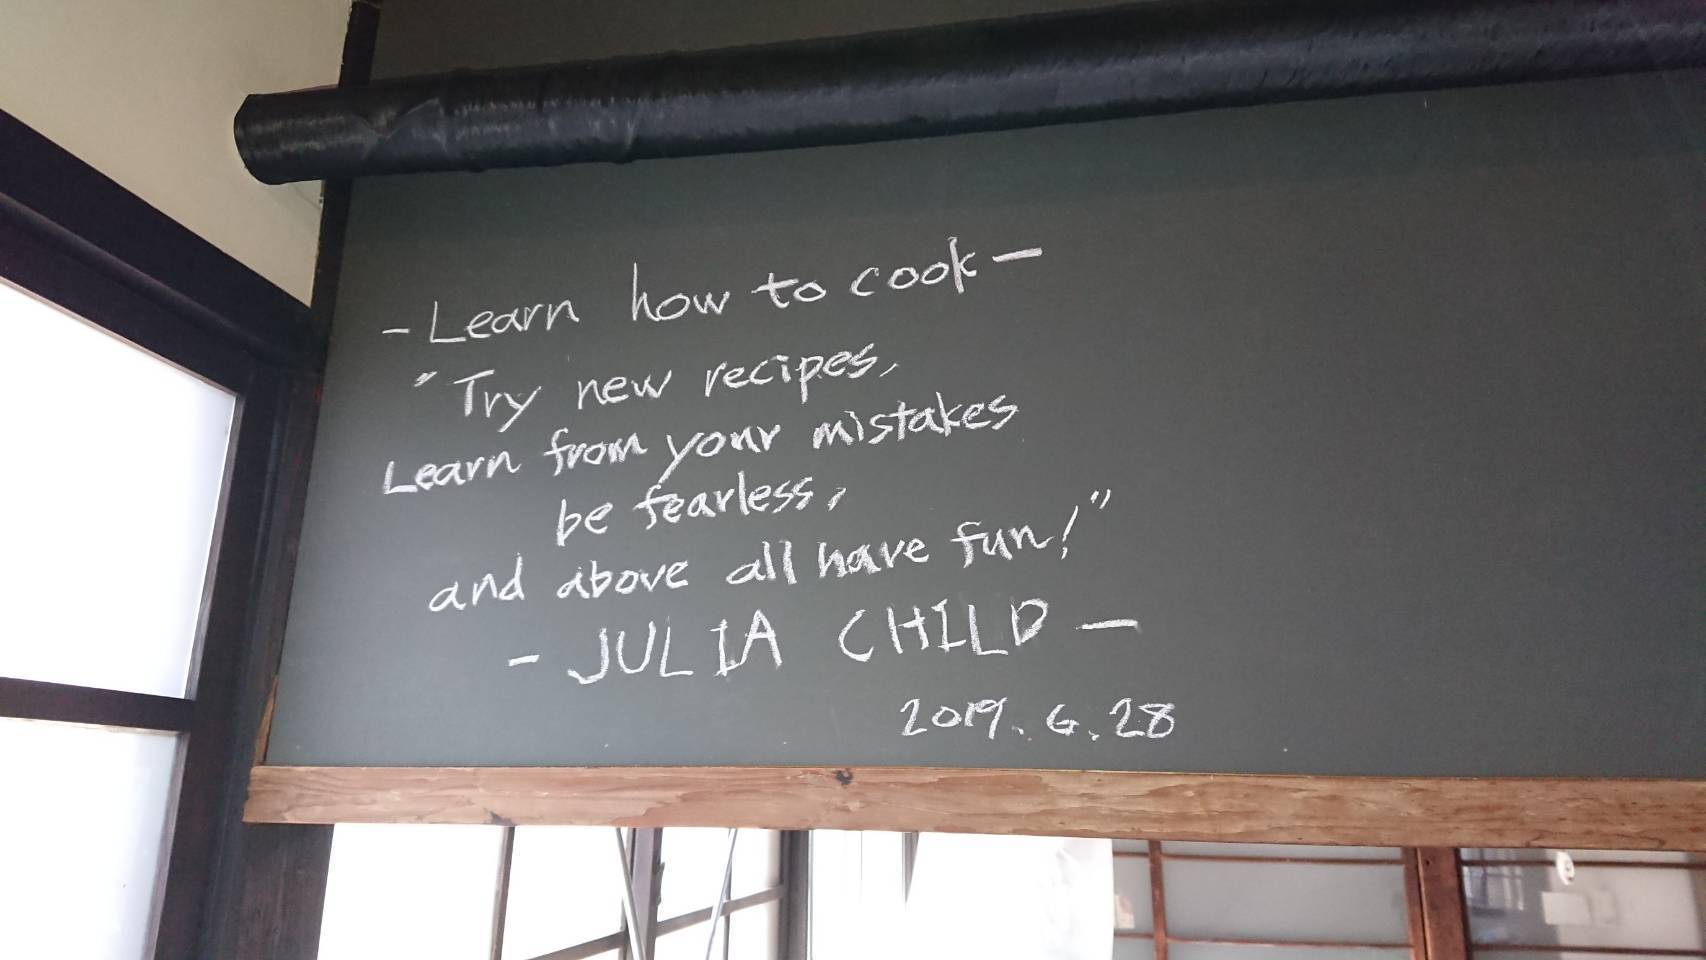 - Learn how to cook -
"Try new recipes,
Learn from your mistakes
be fearless,
and above all have fun!"
- JULIA CHILD -
2019. 6. 28